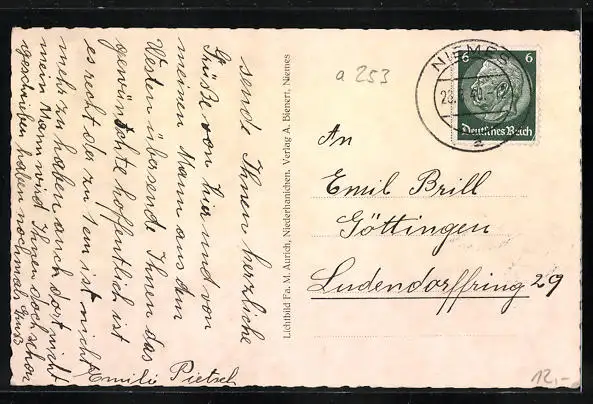 sende Ihnen herzliche
Grüße von hier und von
meinen Mann aus dem
Westen übasende Ihnen das
gewünschte hoffentlich ist
es recht da zu sein ist nicht
mehr zu haben auch dort nicht
mein Mann wird Ihnen doch schon
geschrieben haben nochmal Gruß
Emili Pietsch
Lichtbild Fa. M. Aurich, Niederhanichen. Verlag A. Bienert, Niemes
a 253
NIEMES
40
a
6 6
Deutsches Reich
An
Emil Brill
Göttingen
Ludendorffring 29
12,-